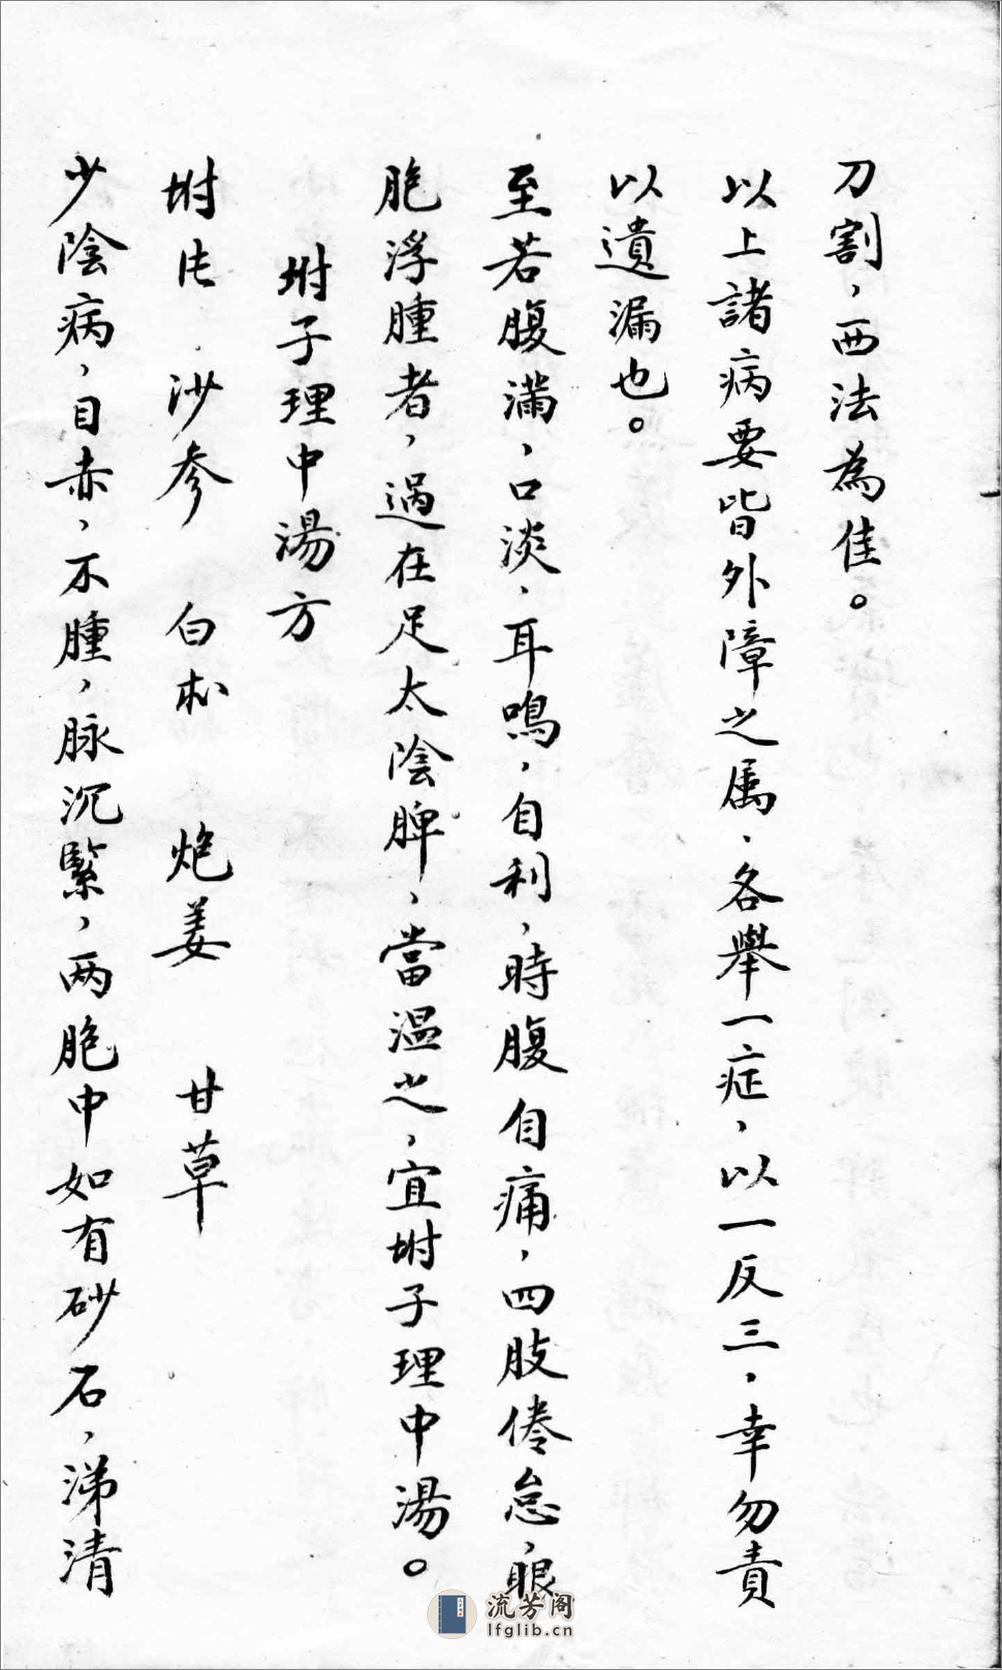 刀割，西法為佳。
以上諸病要皆外障之属，各舉一症，以一反三，幸勿責
以遺漏也。
至若腹滿，口淡，耳鳴，自利，時腹自痛，四肢倦怠，眼
胞浮腫者，過在足太陰脾，當温之，宜坿子理中湯。
坿子理中湯方
坿片 沙參 白朮 炮姜 甘草
少陰病，目赤，不腫，脉沉緊，两胞中如有砂石，涕清
流芳阁
lfglib.cn